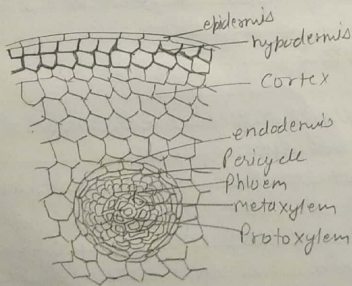 epidermis
hypodermis
cortex
endodermis
Pericycle
Phloem
metaxylem
Protoxylem